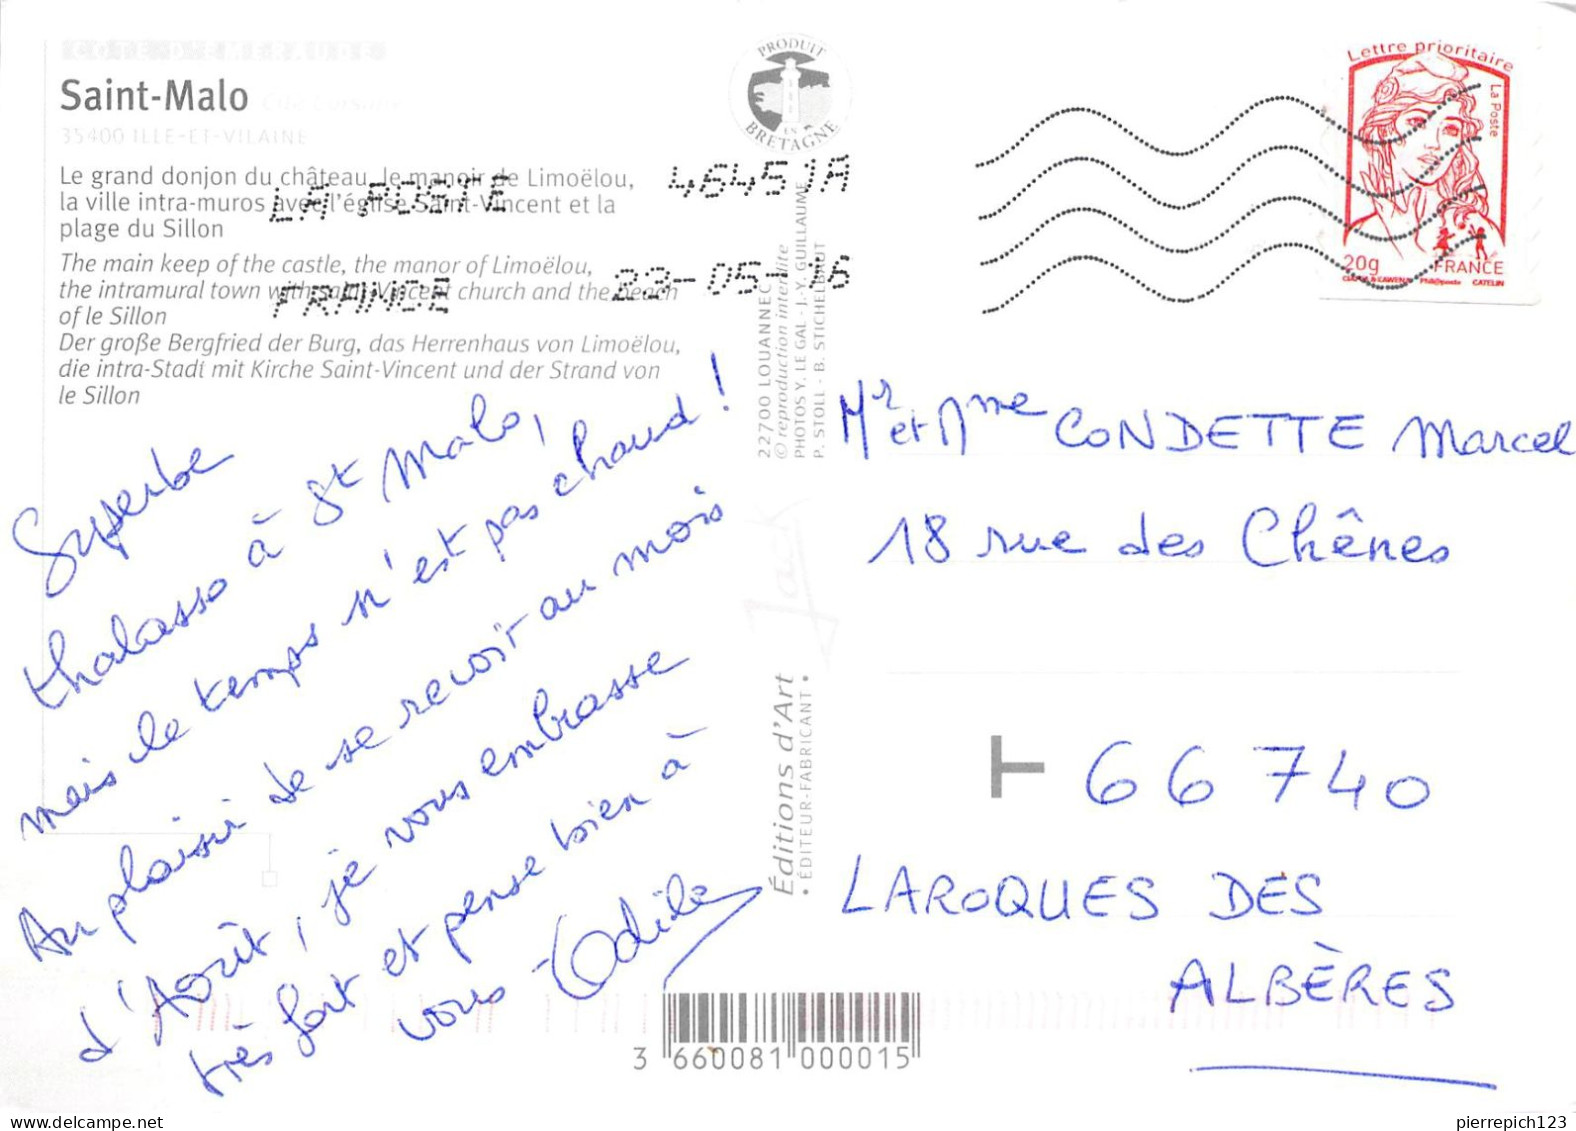 Saint-Malo Cité Corsaire
35400 ILLE-ET-VILAINE
Le grand donjon du château, le manoir de Limoëlou,
la ville intra-muros avec l'église Saint-Vincent et la
plage du Sillon
The main keep of the castle, the manor of Limoëlou,
the intramural town with Saint-Vincent church and the beach
of le Sillon
Der große Bergfried der Burg, das Herrenhaus von Limoëlou,
die intra-Stadt mit Kirche Saint-Vincent und der Strand von
le Sillon
PRODUIT
EN
BRETAGNE
LA POSTE
46451A
FRANCE
23-05-16
Lettre prioritaire
La Poste
20g
FRANCE
Phil@poste
CATELIN
22700 LOUANNEC
© reproduction interdite
PHOTOS Y. LE GAL - J.-Y. GUILLAUME
P. STOLL - B. STICHELBAUT
Jack
Éditions d'Art
• ÉDITEUR-FABRICANT •
Superbe
thalasso à St Malo,
mais le temps n'est pas chaud !
Au plaisir de se revoir au mois
d'Août, je vous embrasse
très fort et pense bien à
vous Odile
Mr et Mme CONDETTE Marcel
18 rue des Chênes
66740
LAROQUES DES
ALBÈRES
3 660081 000015
pierrepich123